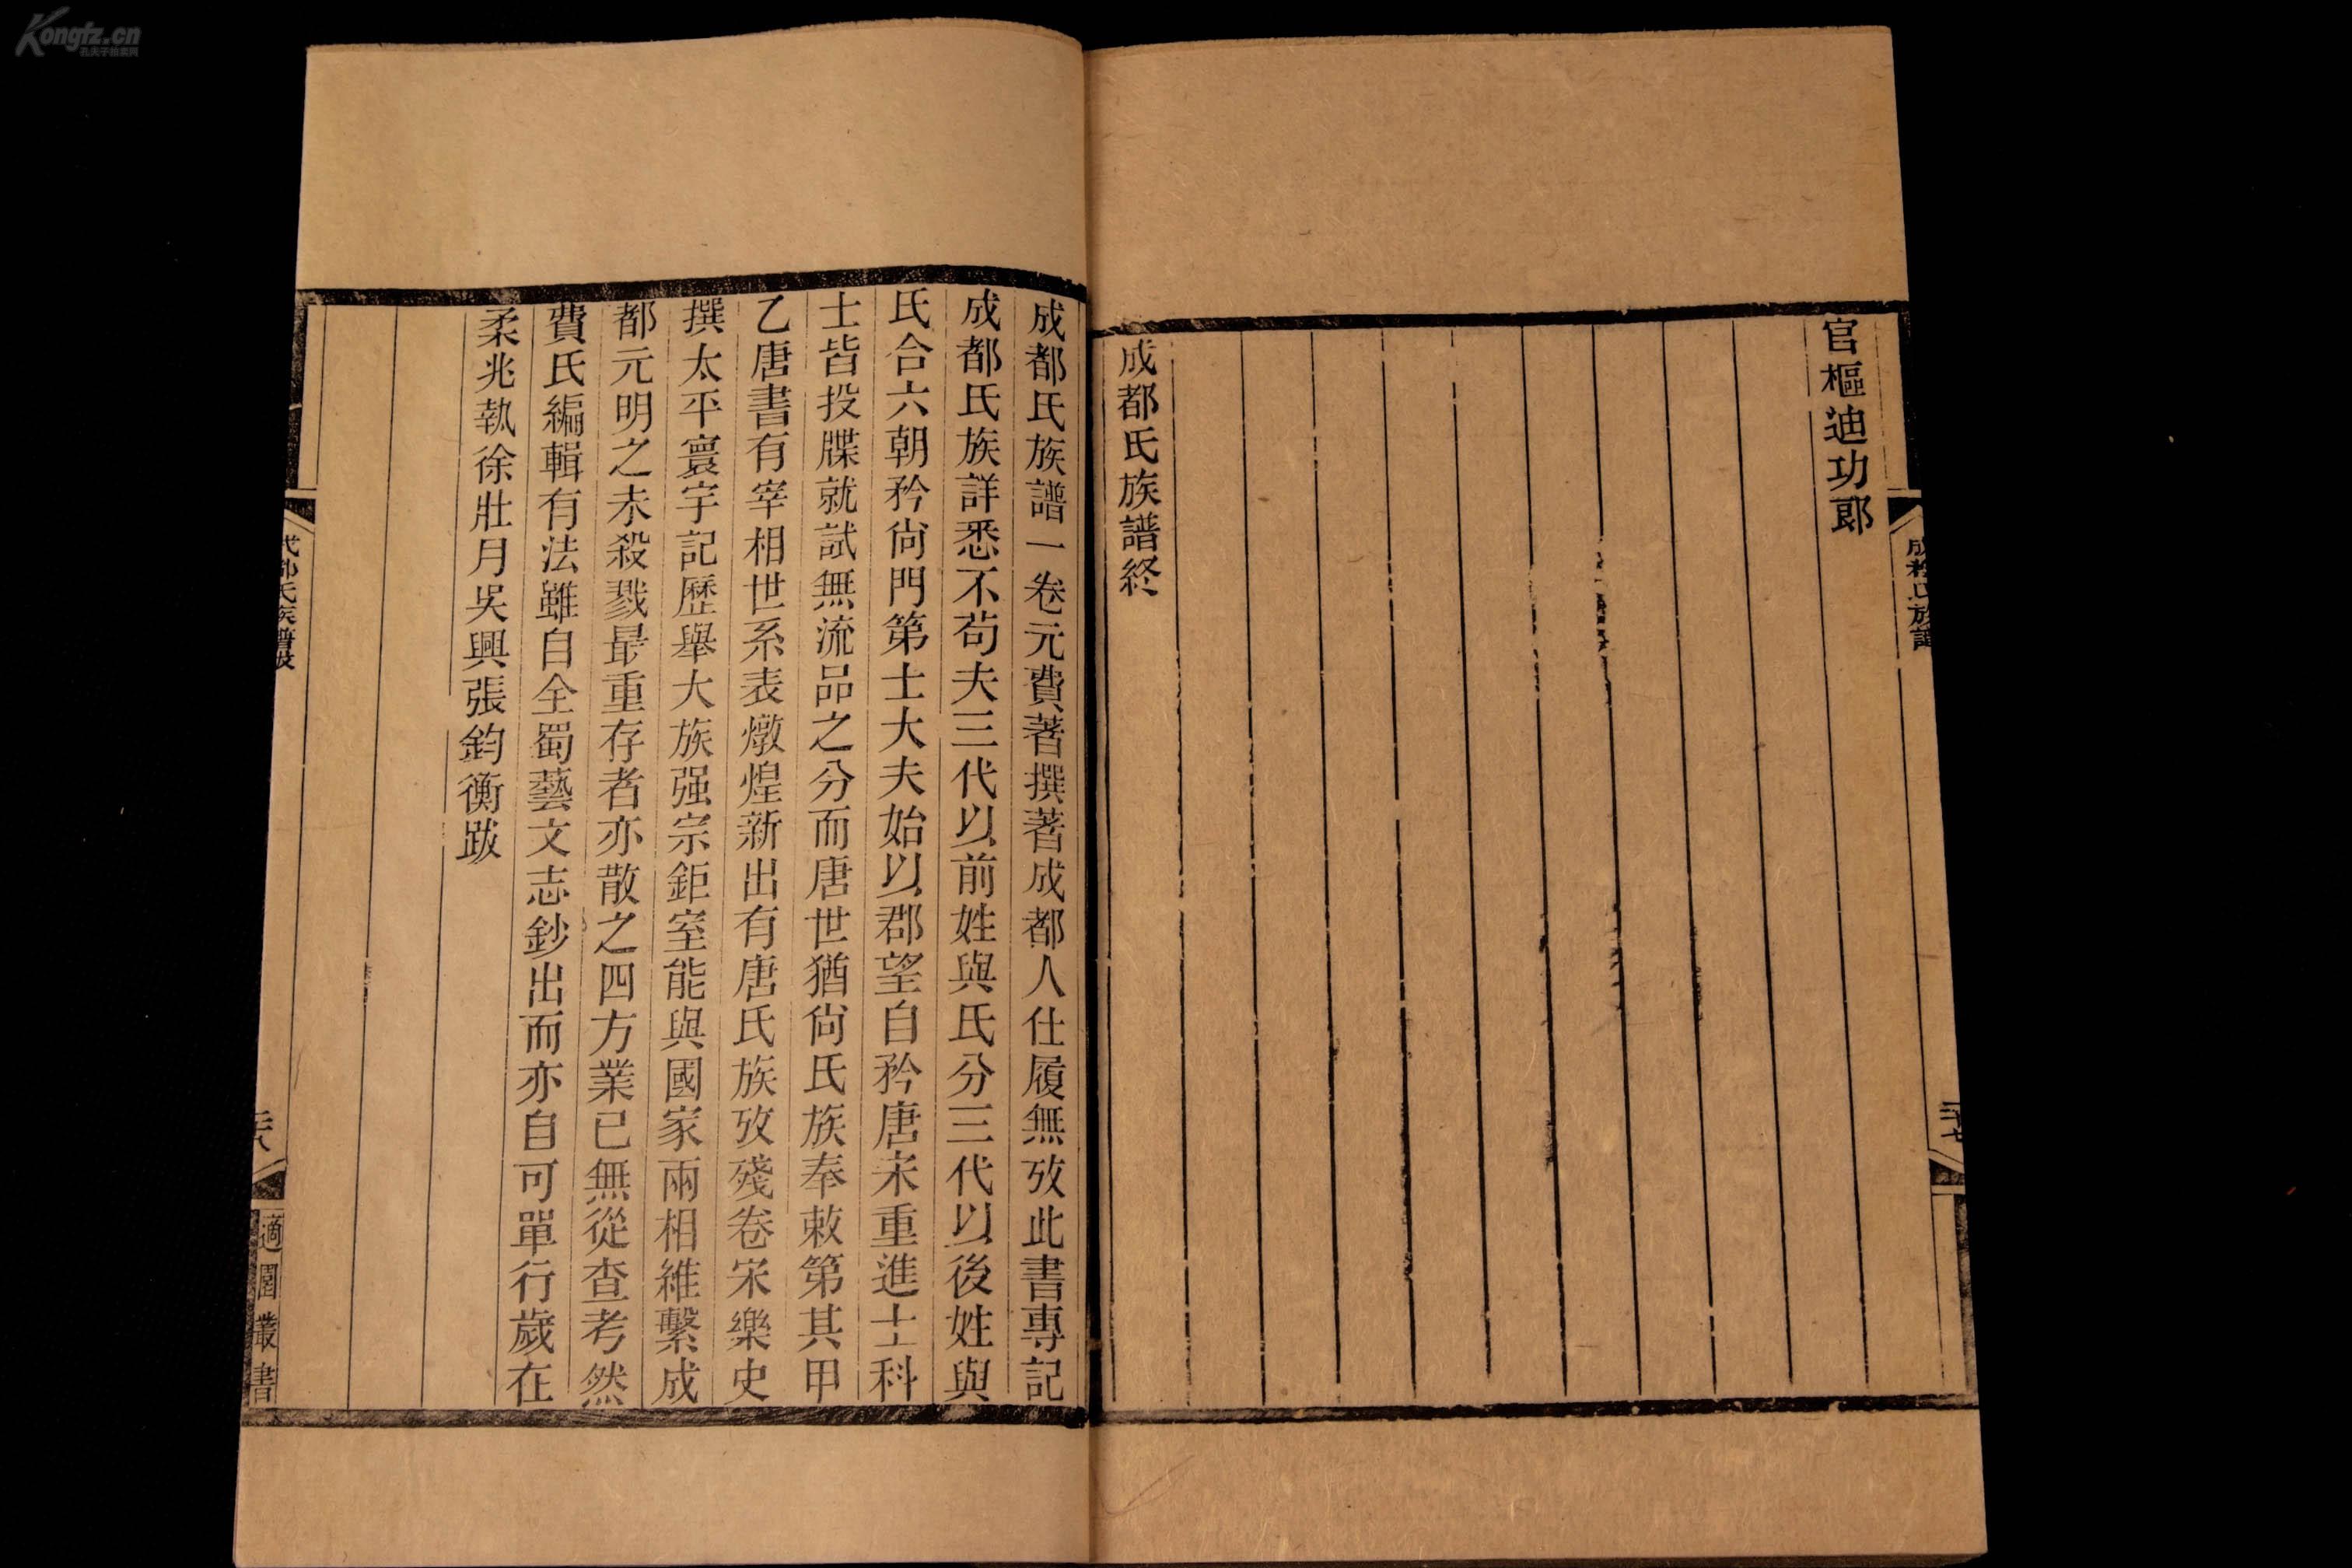 Kongfz.cn
孔夫子拍卖网
官樞迪功郎
成都氏族譜終
成都氏族譜
二十七
成都氏族譜一卷元費著撰著成都人仕履無攷此書專記
成都氏族詳悉不苟夫三代以前姓與氏分三代以後姓與
氏合六朝矜尙門第士大夫始以郡望自矜唐宋重進士科
士皆投牒就試無流品之分而唐世猶尙氏族奉敕第其甲
乙唐書有宰相世系表燉煌新出有唐氏族攷殘卷宋樂史
撰太平寰宇記歷舉大族强宗鉅室能與國家兩相維繫成
都元明之未殺戮最重存者亦散之四方業已無從查考然
費氏編輯有法雖自全蜀藝文志鈔出而亦自可單行歲在
柔兆執徐壯月吳興張鈞衡跋
成都氏族譜跋
二十八
適園叢書